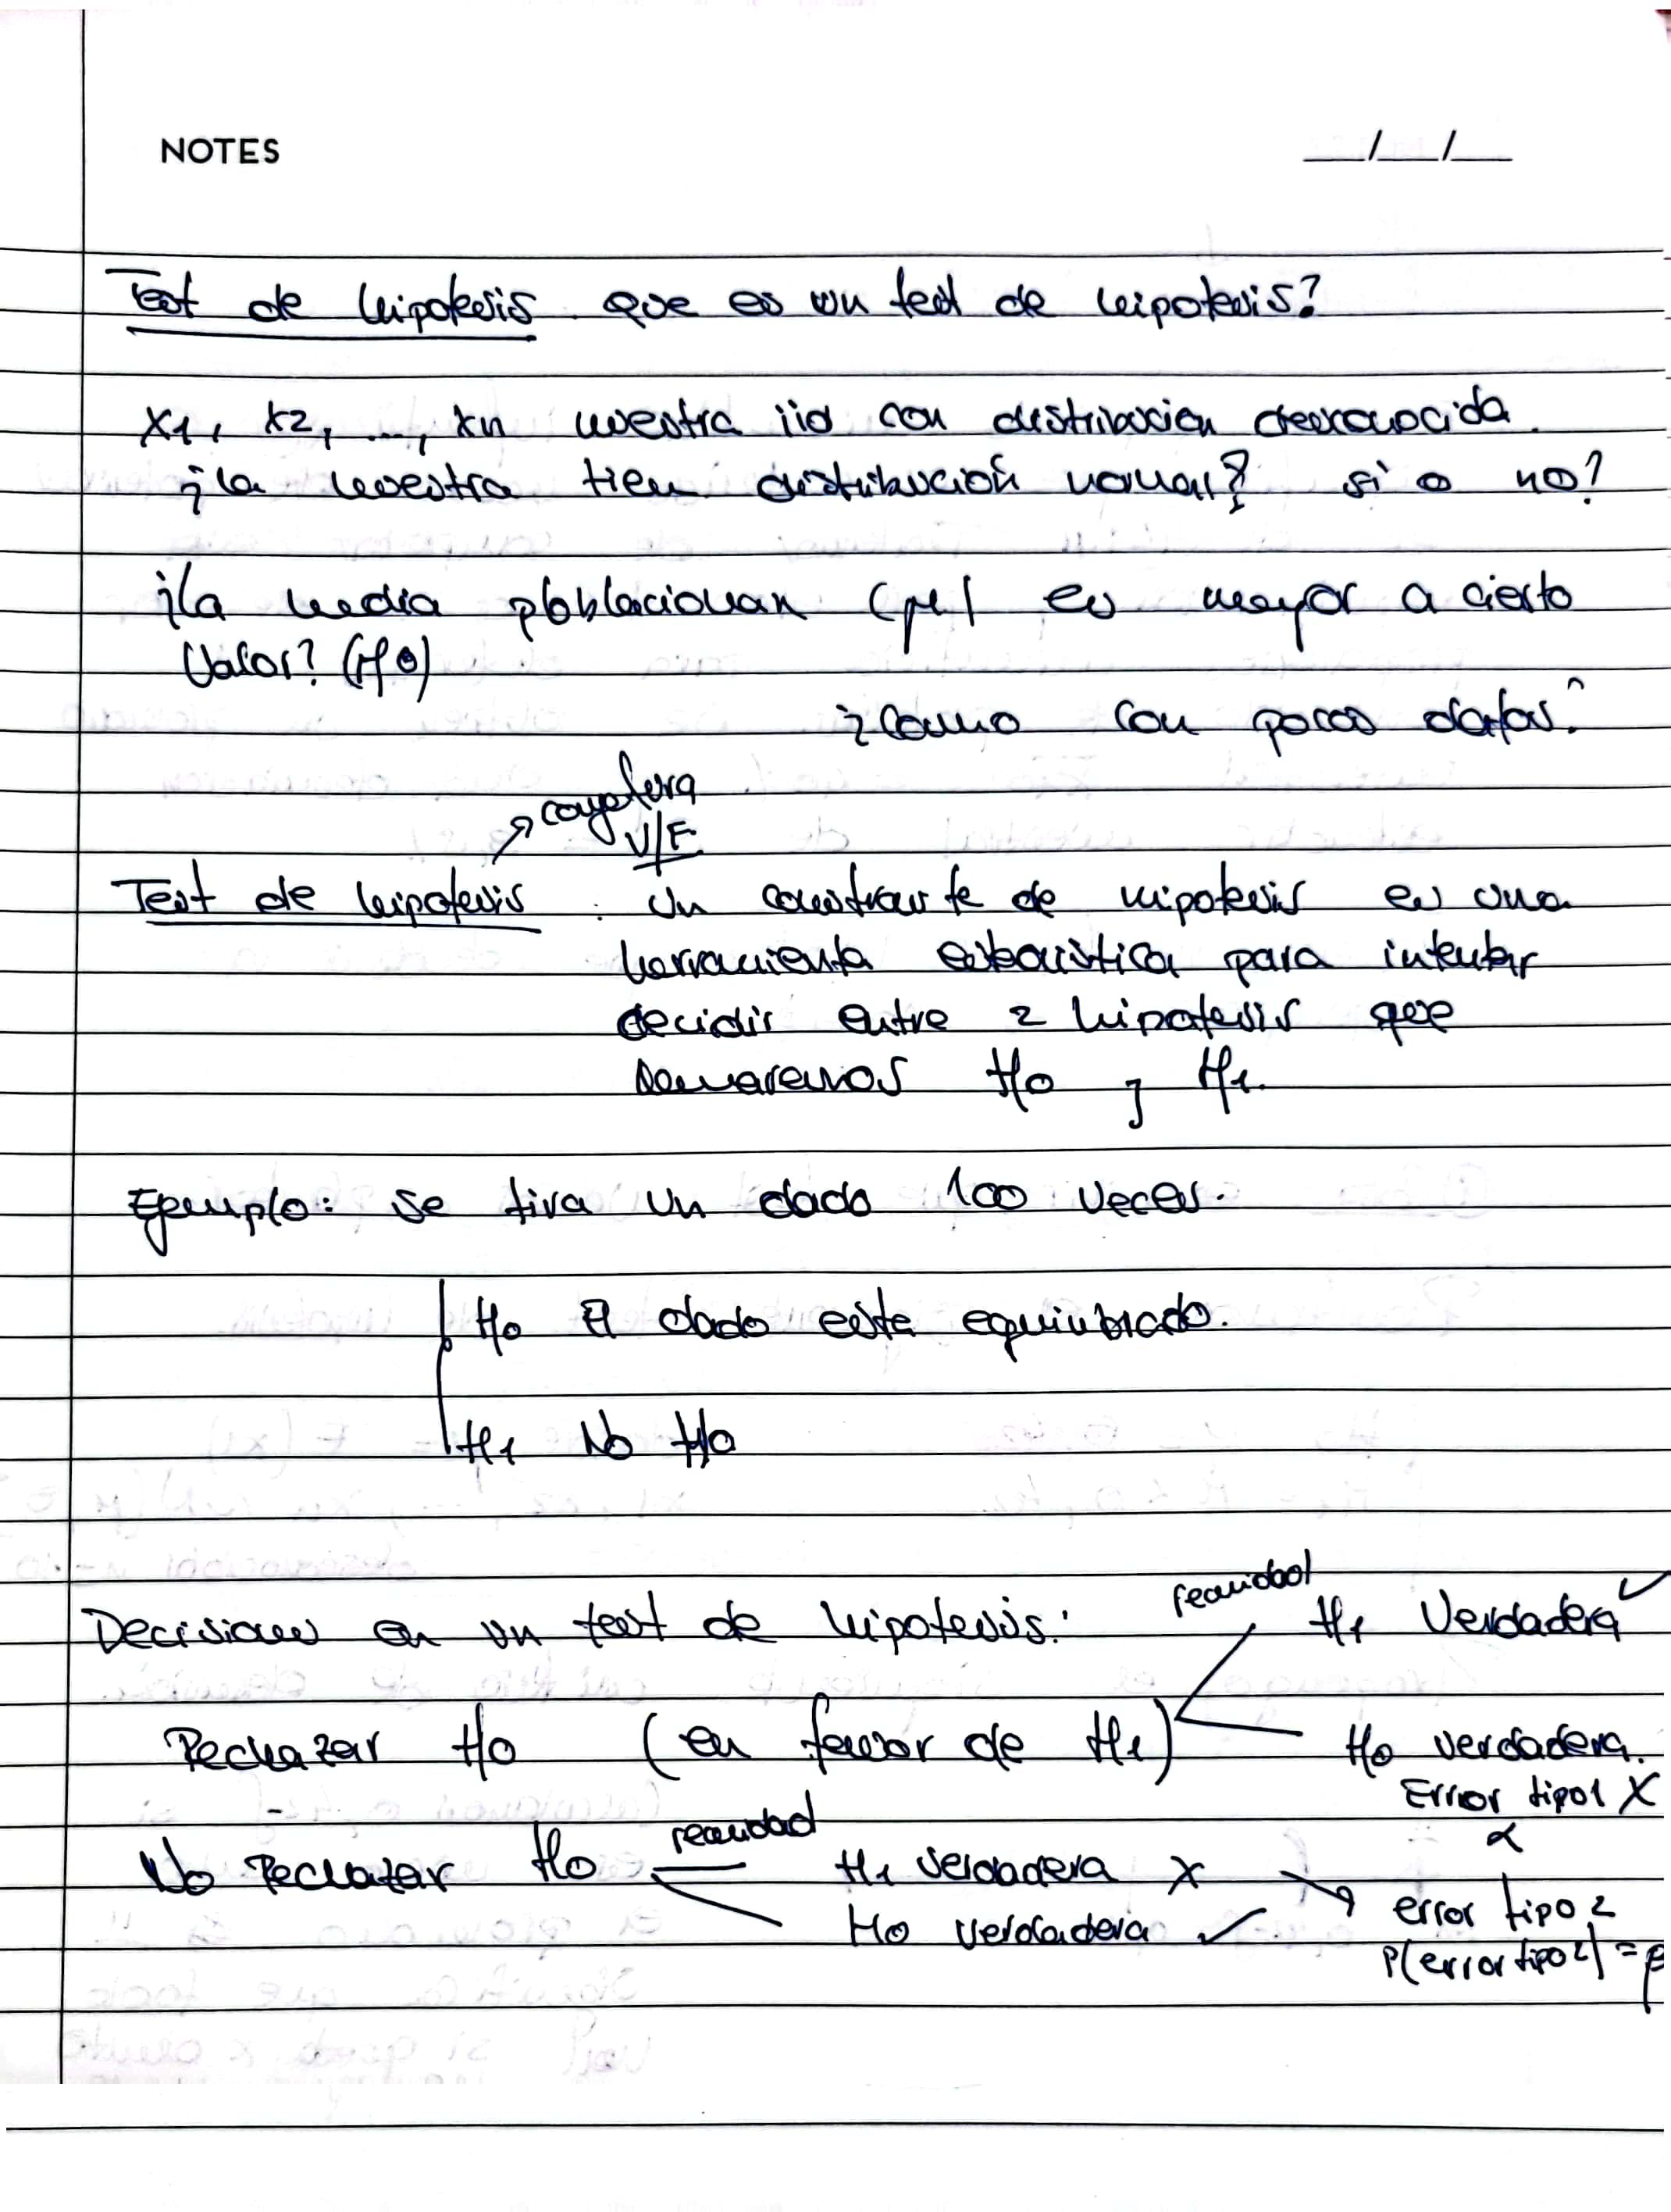 NOTES __/__/__
Test de hipotesis que es un test de hipotesis?
x1, x2, ..., xn muestra iid con distribucion desconocida
¿la muestra tien distribución normal? si o no?
¿la media poblacionan (μ) es mayor a cierto
valor? (μ0)
¿como con pocos datos?
conjetura
V/F.
Test de hipotesis : Un constraste de hipotesis es una
herramienta estadistica para intentar
decidir entre 2 hipotesis que
llamaremos H0 y H1.
Ejemplo: se tira un dado 100 veces.
H0 El dado esta equilibrado.
H1 No H0
realidad
Decisiones en un test de hipotesis: H1 Verdadera ✓
Rechazar H0 (en favor de H1) H0 verdadera.
Error tipo 1 X
α
realidad
No Rechazar H0 H1 verdadera X error tipo 2
H0 verdadera ✓ P(error tipo 2) = β